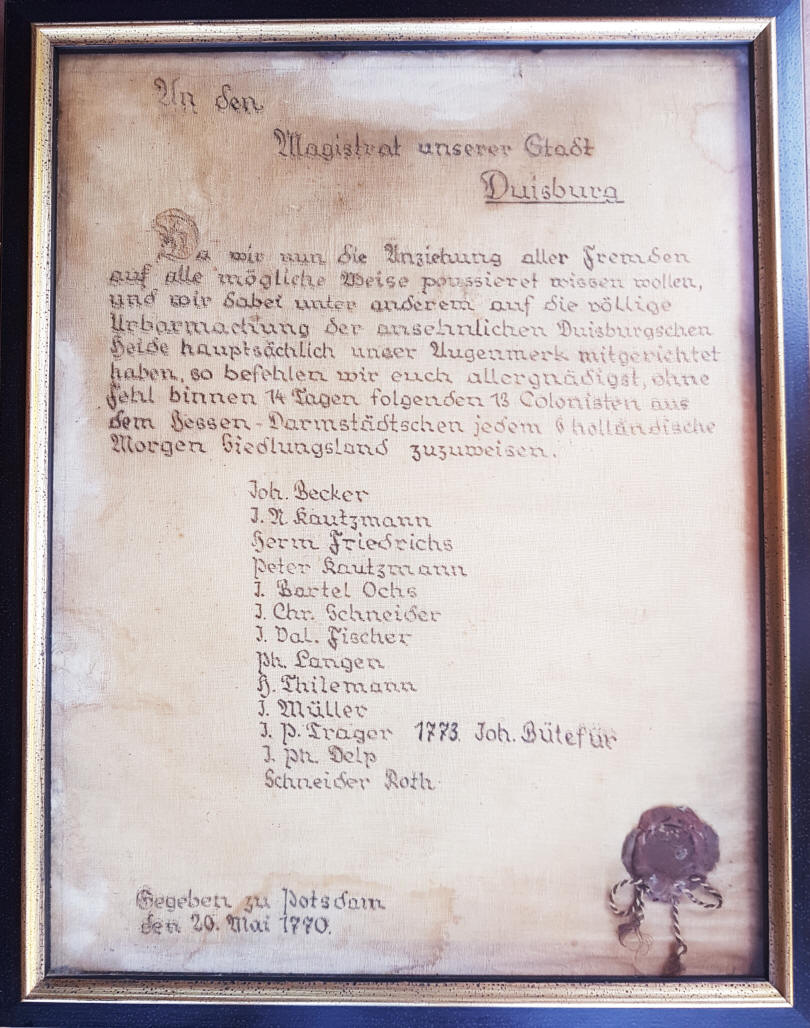 An den
Magistrat unserer Stadt
Duisburg
Da wir nun die Anziehung aller Fremden
auf alle mögliche Weise poussieret wissen wollen,
und wir dabei unter anderem auf die völlige
Urbarmachung der ansehnlichen Duisburgschen
Heide hauptsächlich unser Augenmerk mitgerichtet
haben, so befehlen wir euch allergnädigst, ohne
Fehl binnen 14 Tagen folgenden 13 Colonisten aus
dem Hessen-Darmstädtschen jedem 6 holländische
Morgen Siedlungsland zuzuweisen.
Joh. Becker
J. N Kautzmann
Herm Friedrichs
Peter Kautzmann
J. Bartel Ochs
J. Chr. Schneider
J. Val. Fischer
Ph. Langen
H. Thilemann
J. Müller
J. P. Trager 1773. Joh. Bütefür
J. Ph. Delp
Schneider Roth
Gegeben zu Potsdam
den 20. Mai 1770.